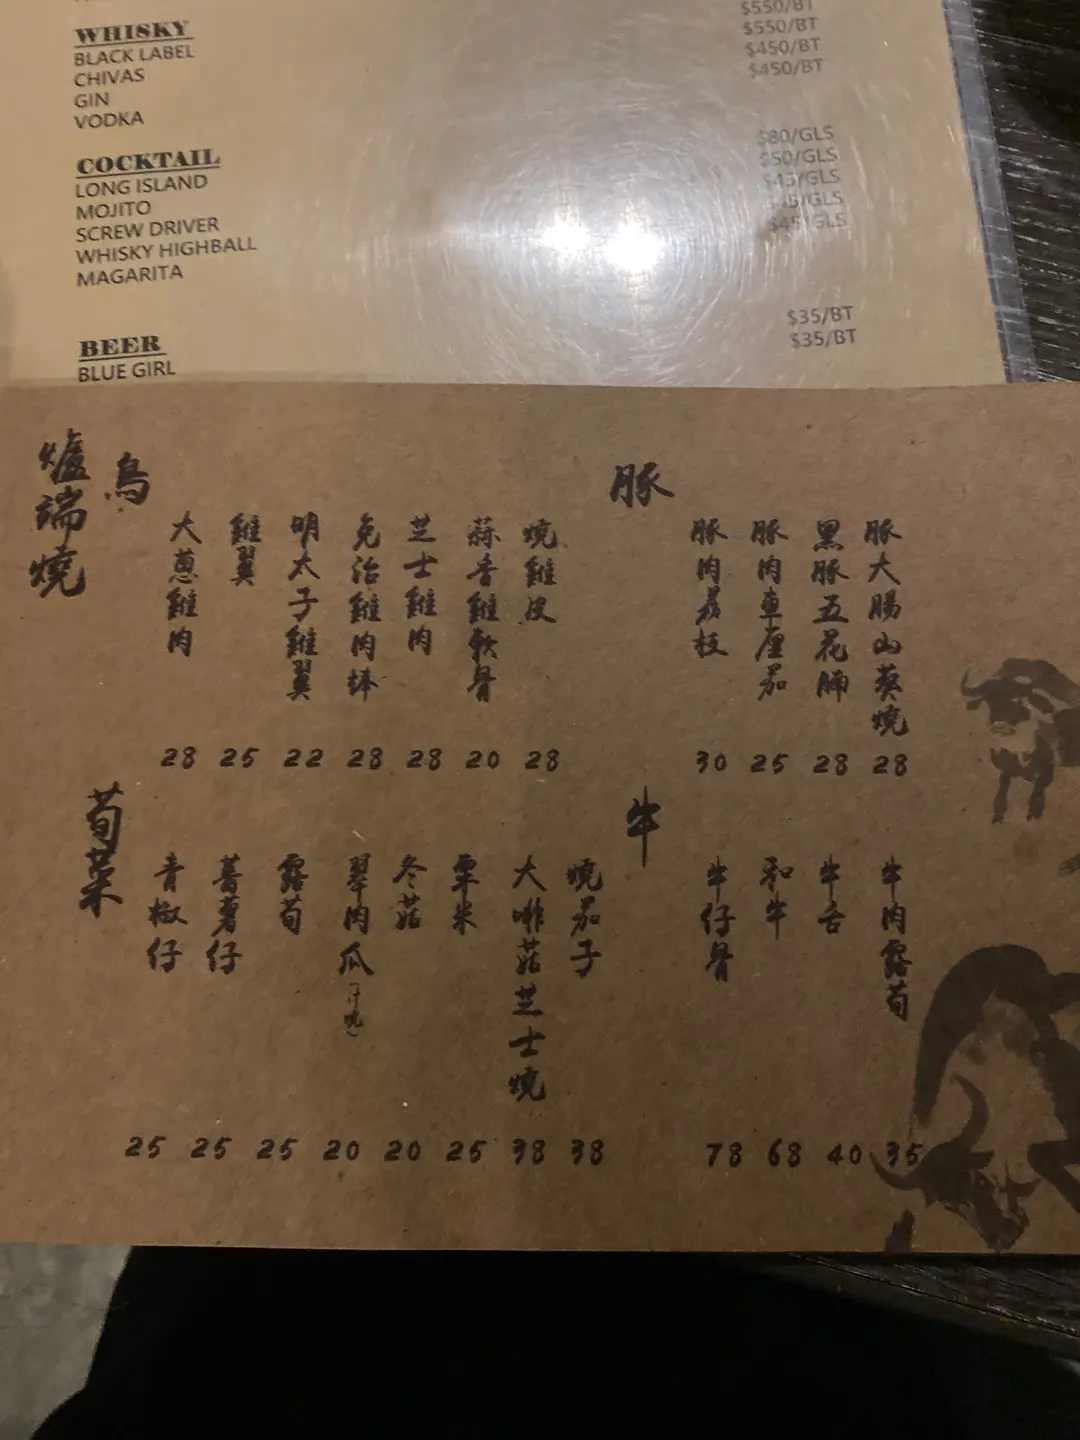 $550/BT
WHISKY
BLACK LABEL $550/BT
CHIVAS $450/BT
GIN $450/BT
VODKA
COCKTAIL
LONG ISLAND $80/GLS
MOJITO $50/GLS
SCREW DRIVER $45/GLS
WHISKY HIGHBALL $45/GLS
MAGARITA $45/GLS
BEER $35/BT
BLUE GIRL $35/BT
爐端燒
鳥
大蔥雞肉 28
雞翼 25
明太子雞翼 22
免治雞肉棒 28
芝士雞肉 28
蒜香雞軟骨 20
燒雞皮 28
豚
豚肉荔枝 30
豚肉車厘茄 25
黑豚五花腩 28
豚大腸山葵燒 28
荀菜
青椒仔 25
薯仔 25
露荀 25
翠肉瓜 20
冬菇 20
粟米 25
大啡菇芝士燒 38
燒茄子 38
牛
牛仔骨 78
和牛 68
牛舌 40
牛肉露荀 35